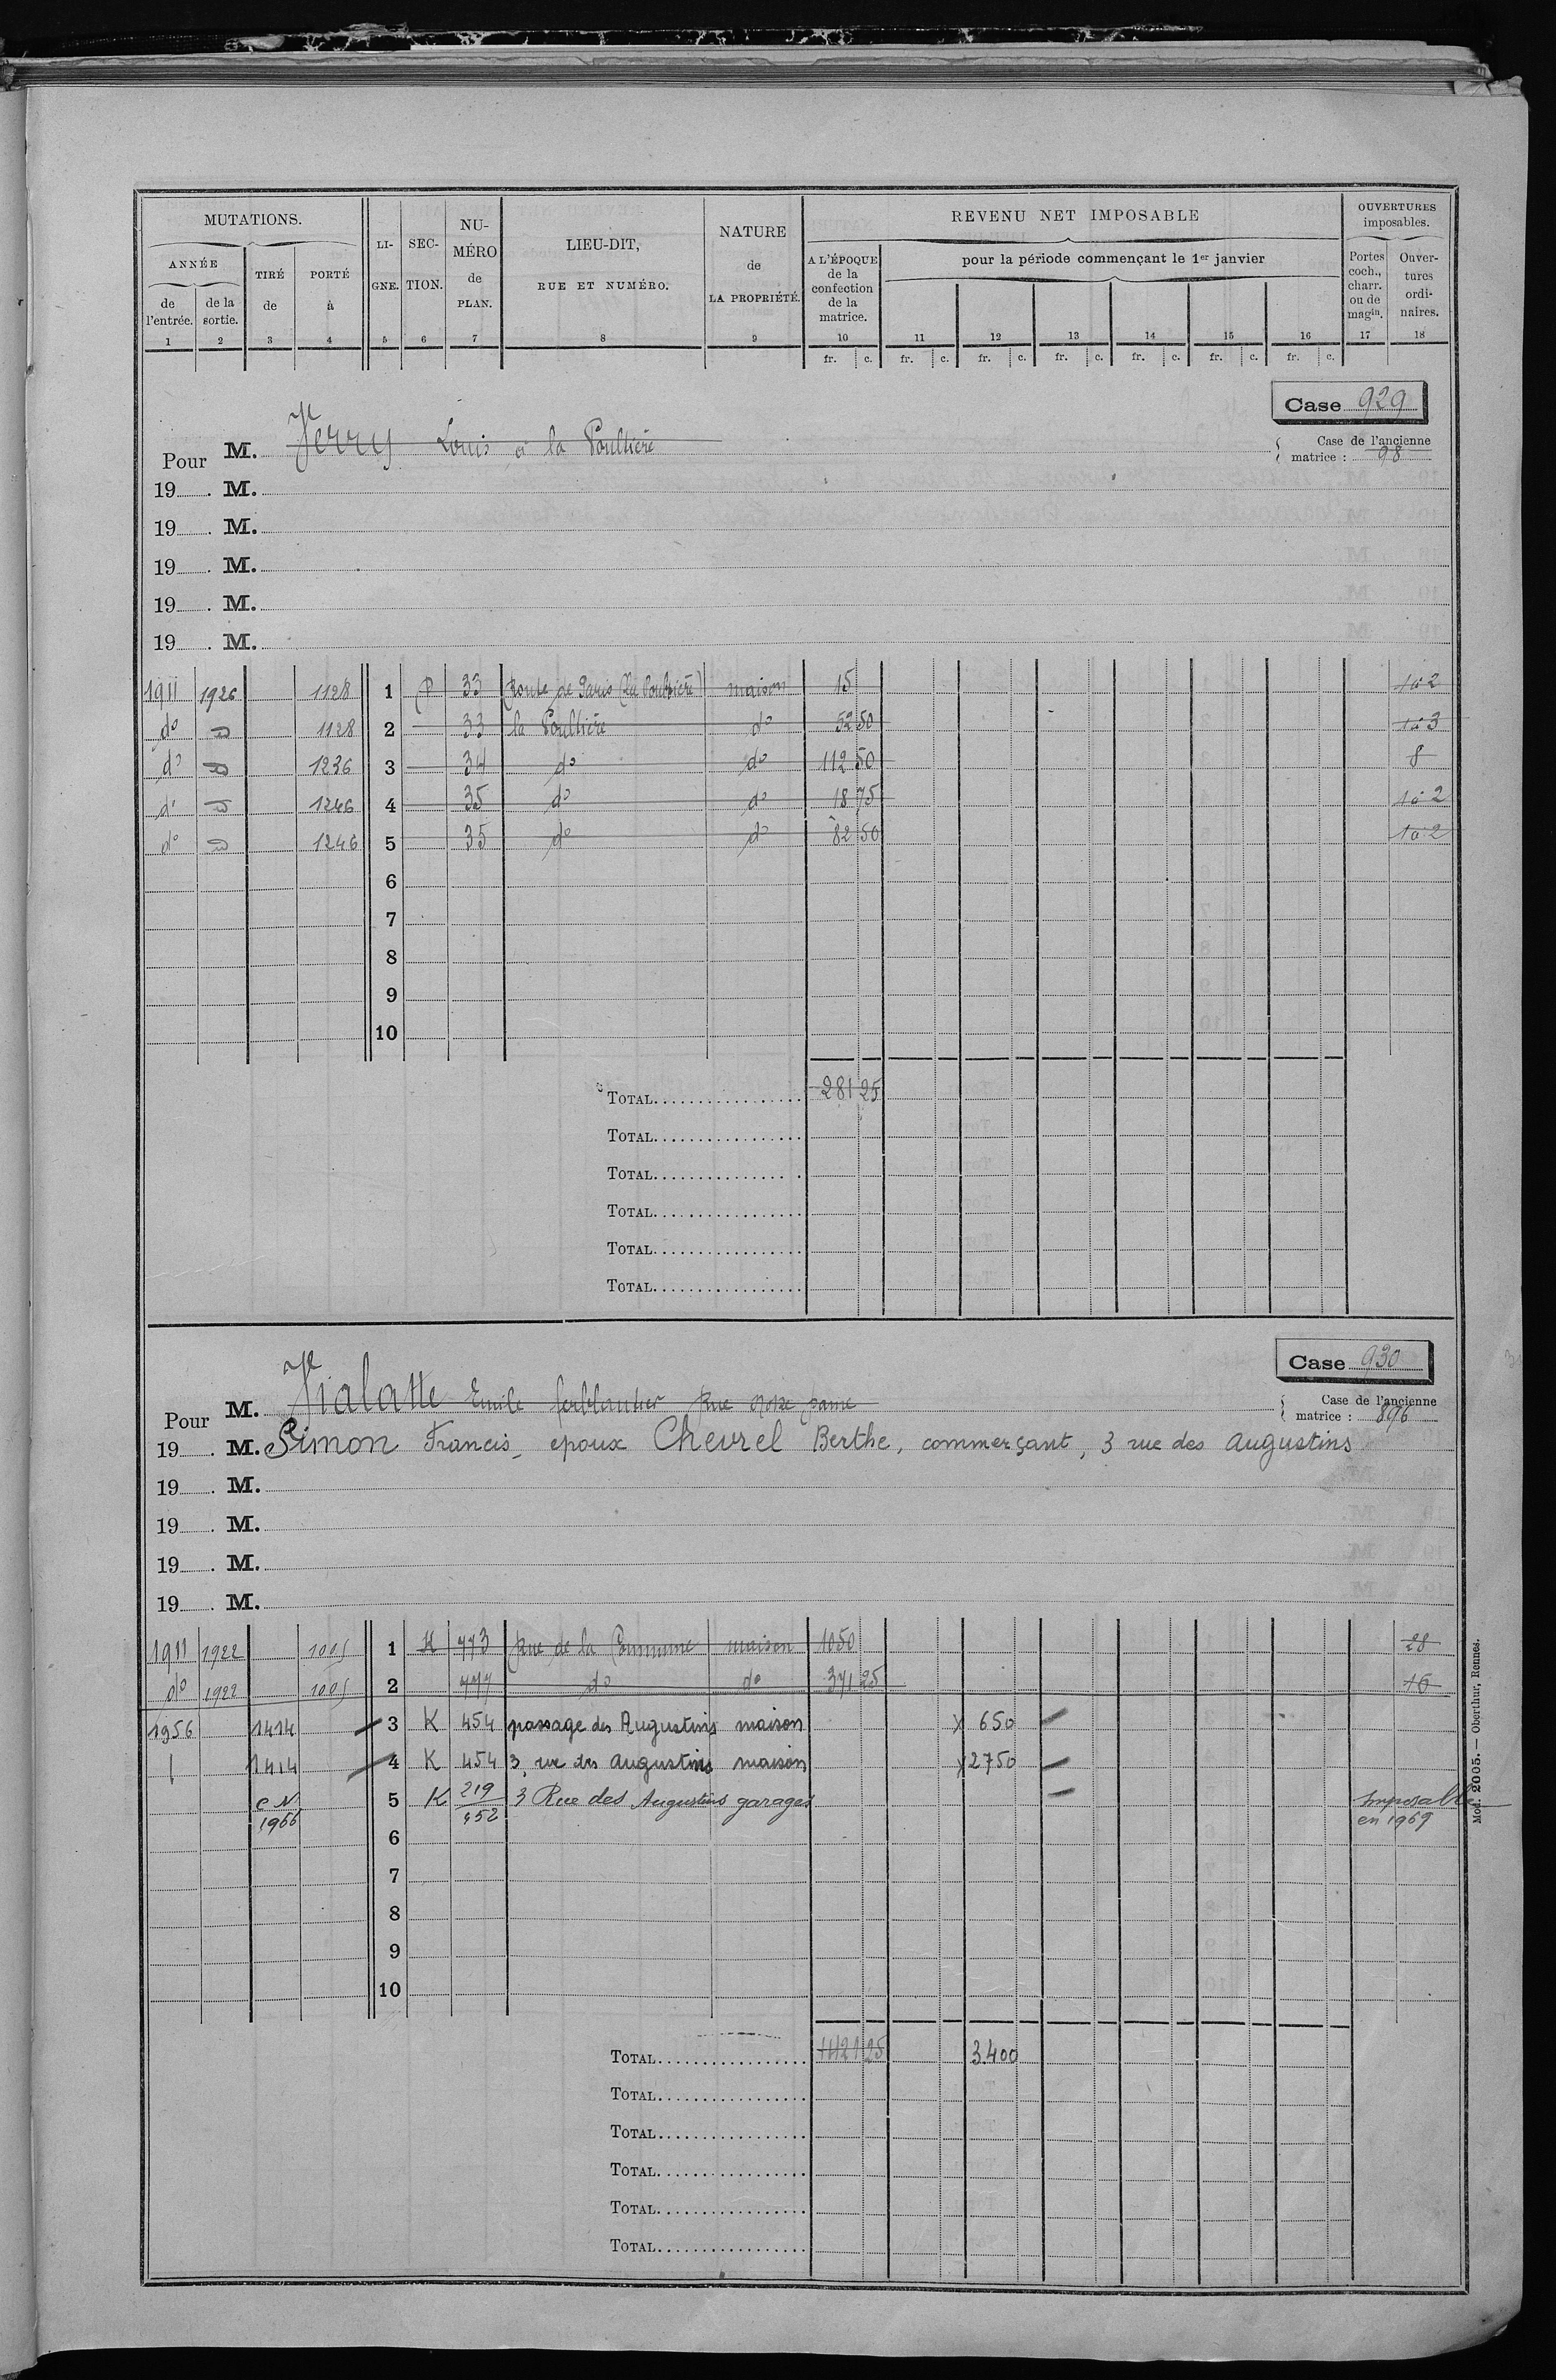 MUTATIONS. LI-GNE. SEC-TION. NU-MÉRO de PLAN. LIEU-DIT, RUE ET NUMÉRO. NATURE de LA PROPRIÉTÉ. REVENU NET IMPOSABLE OUVERTURES imposables.
ANNÉE TIRÉ de PORTÉ à A L'ÉPOQUE de la confection de la matrice. pour la période commençant le 1er janvier Portes coch., charr. ou de magin. Ouver-tures ordi-naires.
de l'entrée. de la sortie.
1 2 3 4 5 6 7 8 9 10 11 12 13 14 15 16 17 18
fr. c. fr. c. fr. c. fr. c. fr. c. fr. c. fr. c.
Case 929
Pour M. Verry Louis à la Poultière
Case de l'ancienne matrice : 98
19 . M.
19 . M.
19 . M.
19 . M.
19 . M.
1911 1926 1128 1 P 33 Route de Paris (La Poultière) maison 15 1à2
do d 1128 2 33 la Poultière do 52 50 1à3
do d 1236 3 34 do do 112 50 8
do d 1246 4 35 do do 18 75 1à2
do d 1246 5 35 do do 82 50 1à2
6
7
8
9
10
TOTAL 281 25
TOTAL
TOTAL
TOTAL
TOTAL
TOTAL
Case 930
Pour M. Vialatte Emile ferblantier Rue Notre Dame
Case de l'ancienne matrice : 896
19 . M. Simon Francis, epoux Chevrel Berthe, commerçant, 3 rue des Augustins
19 . M.
19 . M.
19 . M.
19 . M.
1911 1922 1005 1 K 773 Rue de la Commune maison 1050 28
do 1922 1005 2 777 do do 371 25 16
1956 1414 3 K 454 passage des Augustins maison x 650
1414 4 K 454 3, rue des Augustins maison x 2750
CN 1966 5 K 219/452 3 Rue des Augustins garages Imposable en 1969
6
7
8
9
10
TOTAL 1421 25 3.400
TOTAL
TOTAL
TOTAL
TOTAL
TOTAL
Mod. 2005. — Oberthur, Rennes.